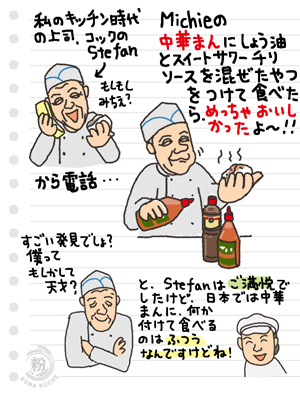 私のキッチン時代
の上司、コックの
Stefan
もしもし
みちえ?
から電話…
Michieの
中華まんにしょう油
とスイートサワーチリ
ソースを混ぜたやつ
をつけて食べた
ら、めっちゃおいし
かったよ〜!!
すごい発見でしょ?
僕って
もしかして
天才?
と、Stefanはご満悦で
したけど、日本では中華
まんに、何か
付けて食べる
のはふつう
なんですけどね!
粉
KONA KÖCHE